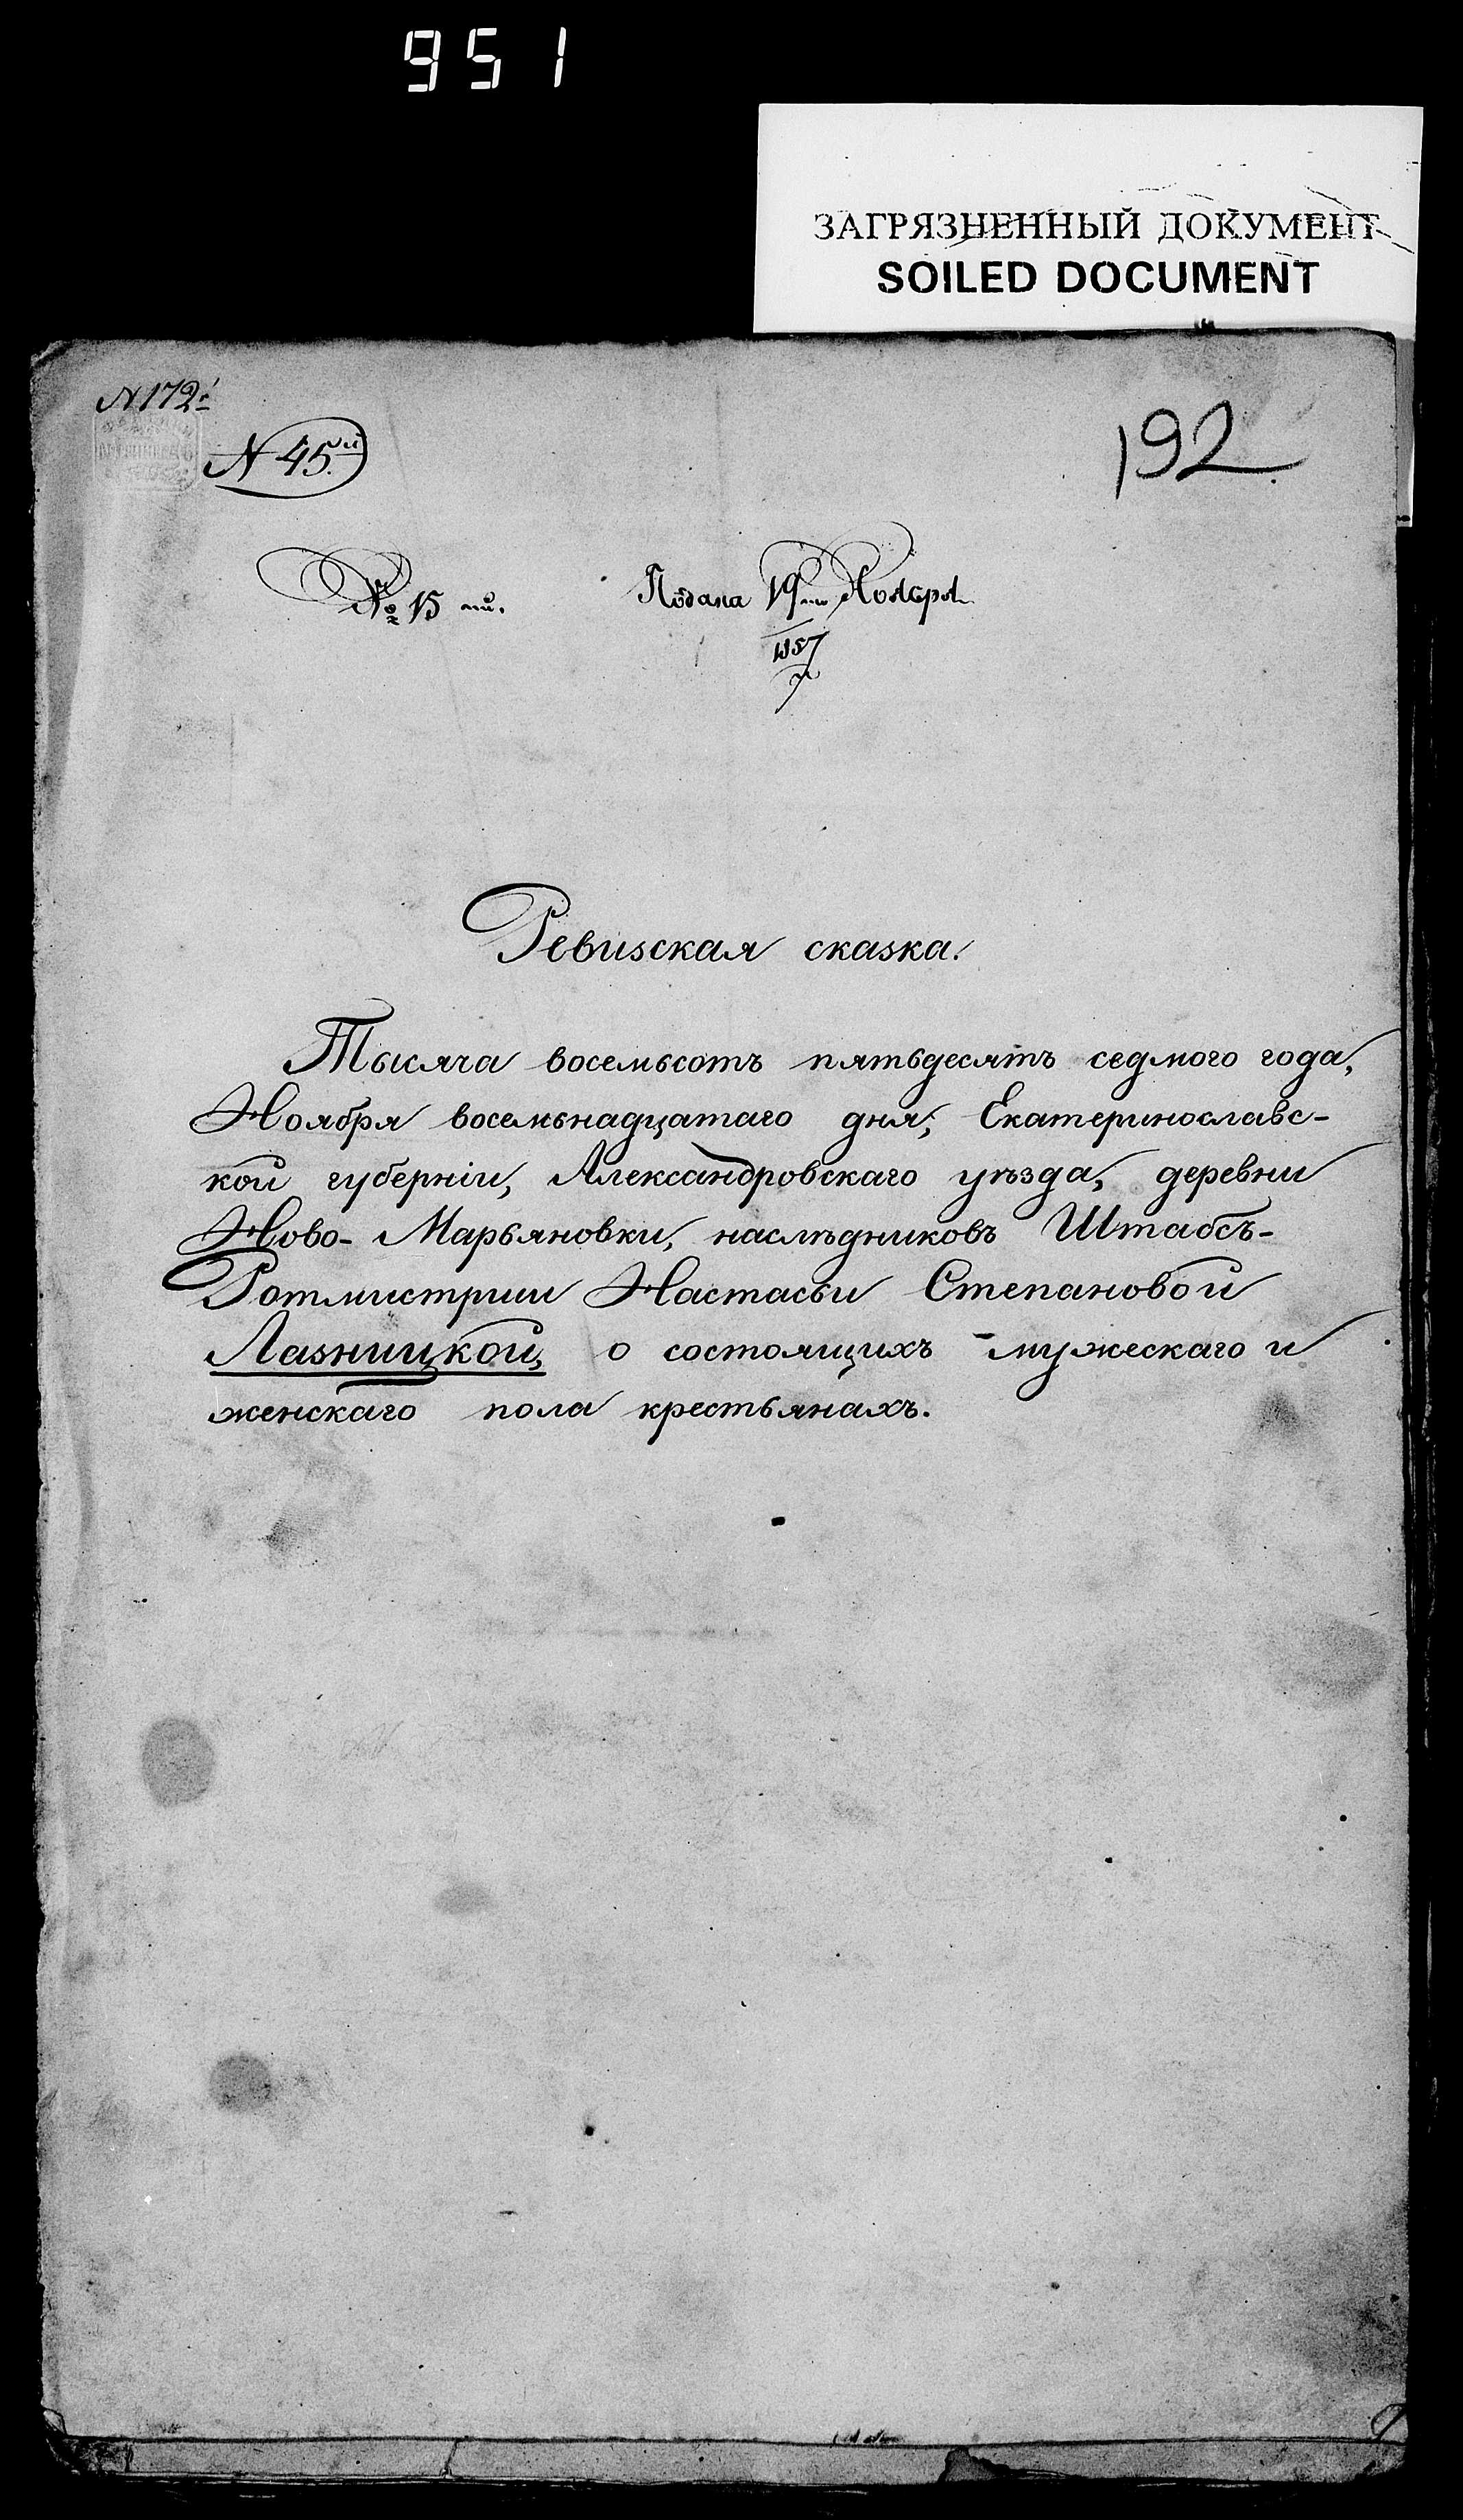 951
ЗАГРЯЗНЕННЫЙ ДОКУМЕНТ
SOILED DOCUMENT
N 172й
N 45.й
192
№ 15 ый.
Подана 19го Ноября
1857
Ревизская сказка.
Тысяча восемьсотъ пятьдесятъ седмого года,
Ноября восемьнадцатаго дня, Екатеринославс-
кой губерніи, Александровскаго уѣзда, деревни
Ново- Марьяновки, наслѣдниковъ Штабсъ-
Ротмистрши Настасьи Степановой
Лазницкой, о состоящихъ мужескаго и
женскаго пола крестьянахъ.